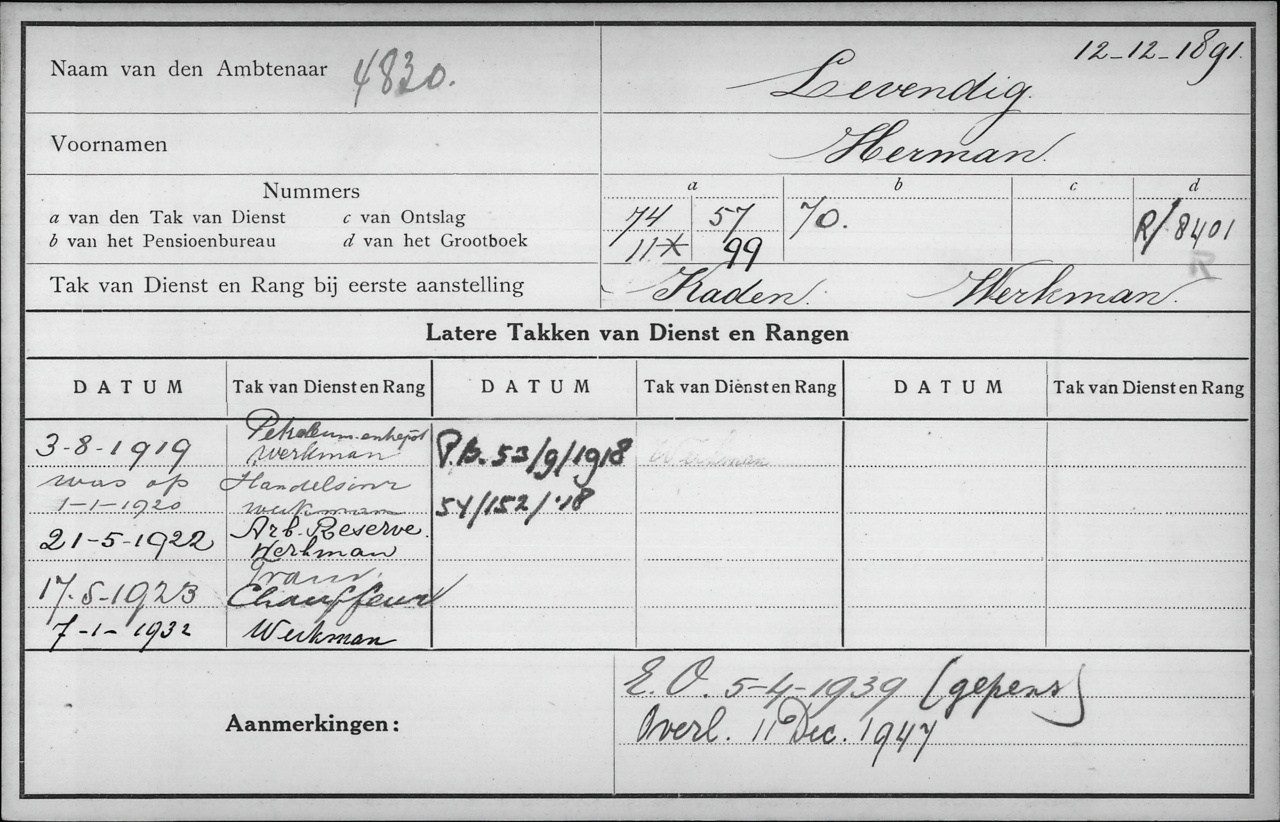 12-12-1891.
Naam van den Ambtenaar 4830. Levendig.
Voornamen Herman.
Nummers a b c d
a van den Tak van Dienst c van Ontslag 74 57 70. R/8401
b van het Pensioenbureau d van het Grootboek 11* 99
Tak van Dienst en Rang bij eerste aanstelling Kaden. Werkman.
Latere Takken van Dienst en Rangen
DATUM Tak van Dienst en Rang DATUM Tak van Dienst en Rang DATUM Tak van Dienst en Rang
Petroleum-
3-8-1919 Werkman P.B. 53/9/1918 Werkman
was op Handelsinr
1-1-1920 werkman 54/152/'18
Arb. Reserve.
21-5-1922 Werkman
Tram.
17-5-1923 Chauffeur
7-1-1932 Werkman
E.O. 5-4-1939 (gepens)
Aanmerkingen: Overl. 11 Dec. 1947